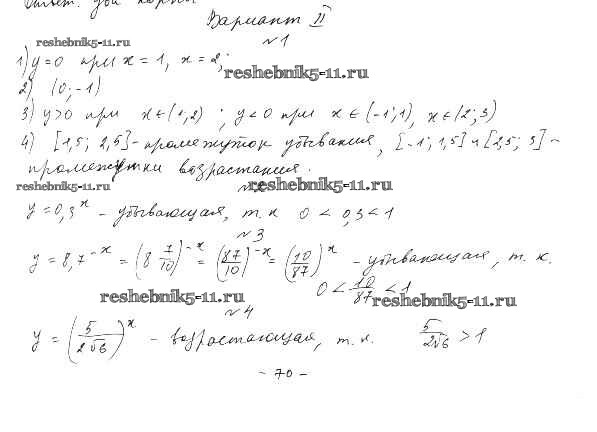 Ответ: два корня
Вариант II
reshebnik5-11.ru
№1
1) y=0 при x=1, x=2;
reshebnik5-11.ru
2) (0;-1)
3) y>0 при x∈(1;2) ; y<0 при x∈(-1;1), x∈(2;3)
4) [1,5; 2,5] - промежуток убывания, [-1; 1,5] и [2,5; 3] -
промежутки возрастания.
reshebnik5-11.ru
reshebnik5-11.ru
y=0,3^x - убывающая, т.к 0 < 0,3 < 1
№3
y = 8,7^{-x} = (8 7/10)^{-x} = (87/10)^{-x} = (10/87)^x - убывающая, т.к.
0 < 10/87 < 1
reshebnik5-11.ru
reshebnik5-11.ru
№4
y = (5/2√6)^x - возрастающая, т.к. 5/2√6 > 1
- 70 -